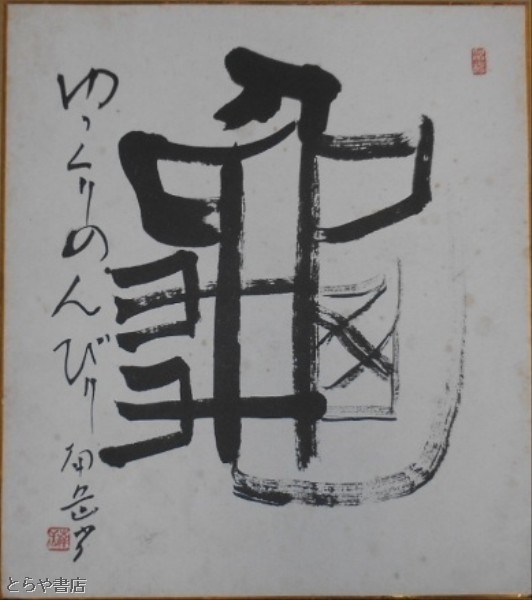 龜
ゆっくりのんびり
とらや書店